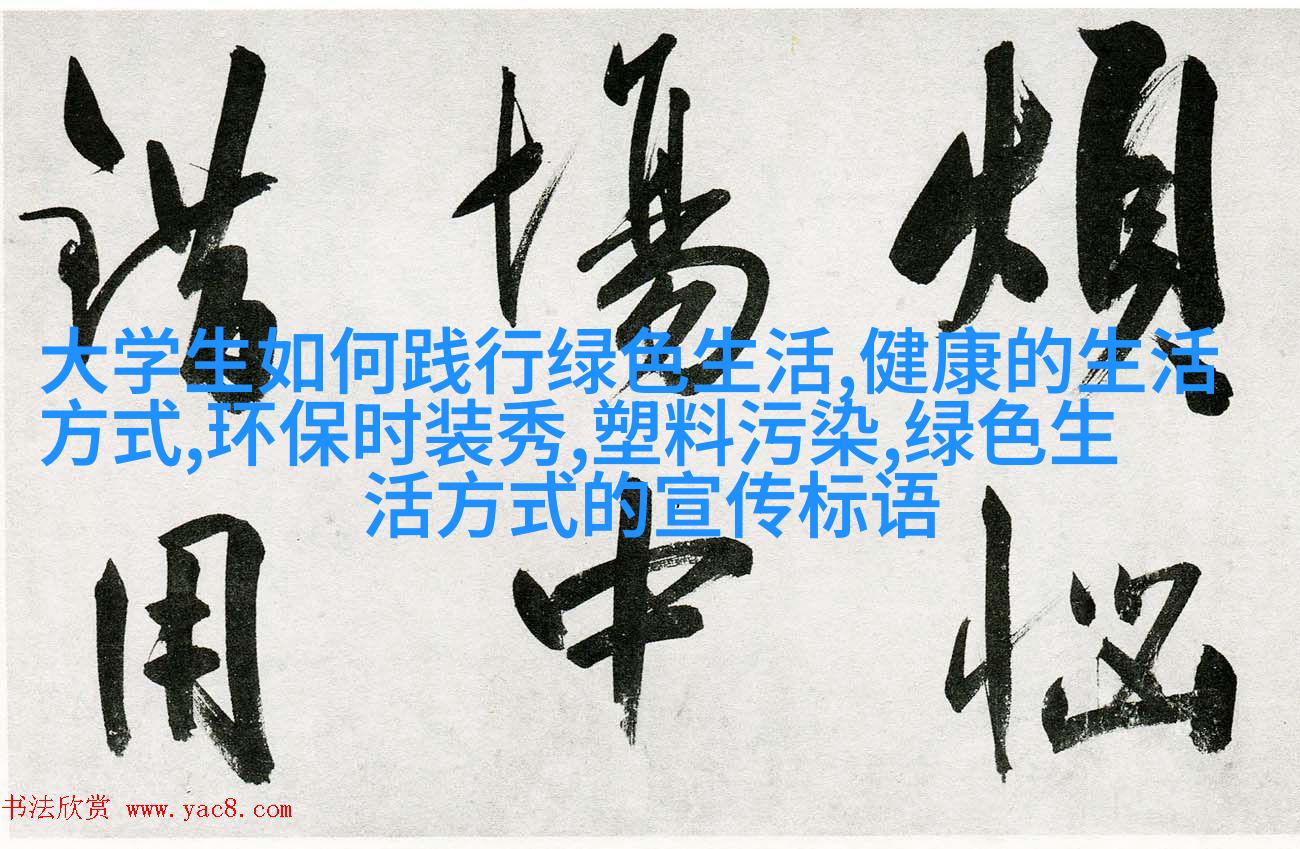 煩惱
場中
錯用
大学生如何践行绿色生活,健康的生活
方式,环保时装秀,塑料污染,绿色生
活方式的宣传标语
书法欣赏 www.yac8.com